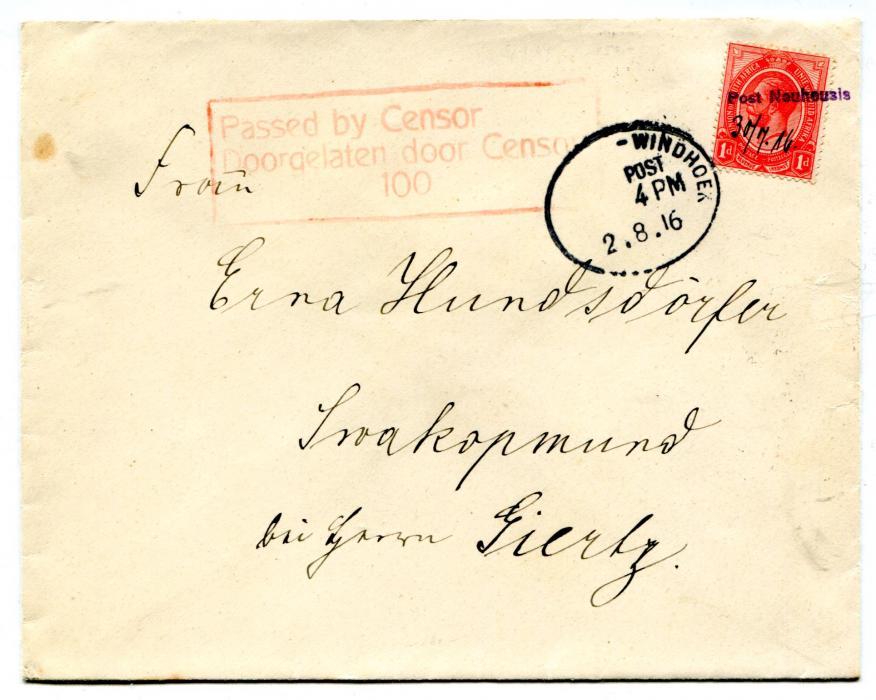 Passed by Censor
Doorgelaten door Censor
100
-WINDHOEK
POST
4 PM
2.8.16
Post Nauheusis
30/7.16
1d 1d
Frau
Erna Hundsdörfer
Swakopmund
bei Herrn Giertz.